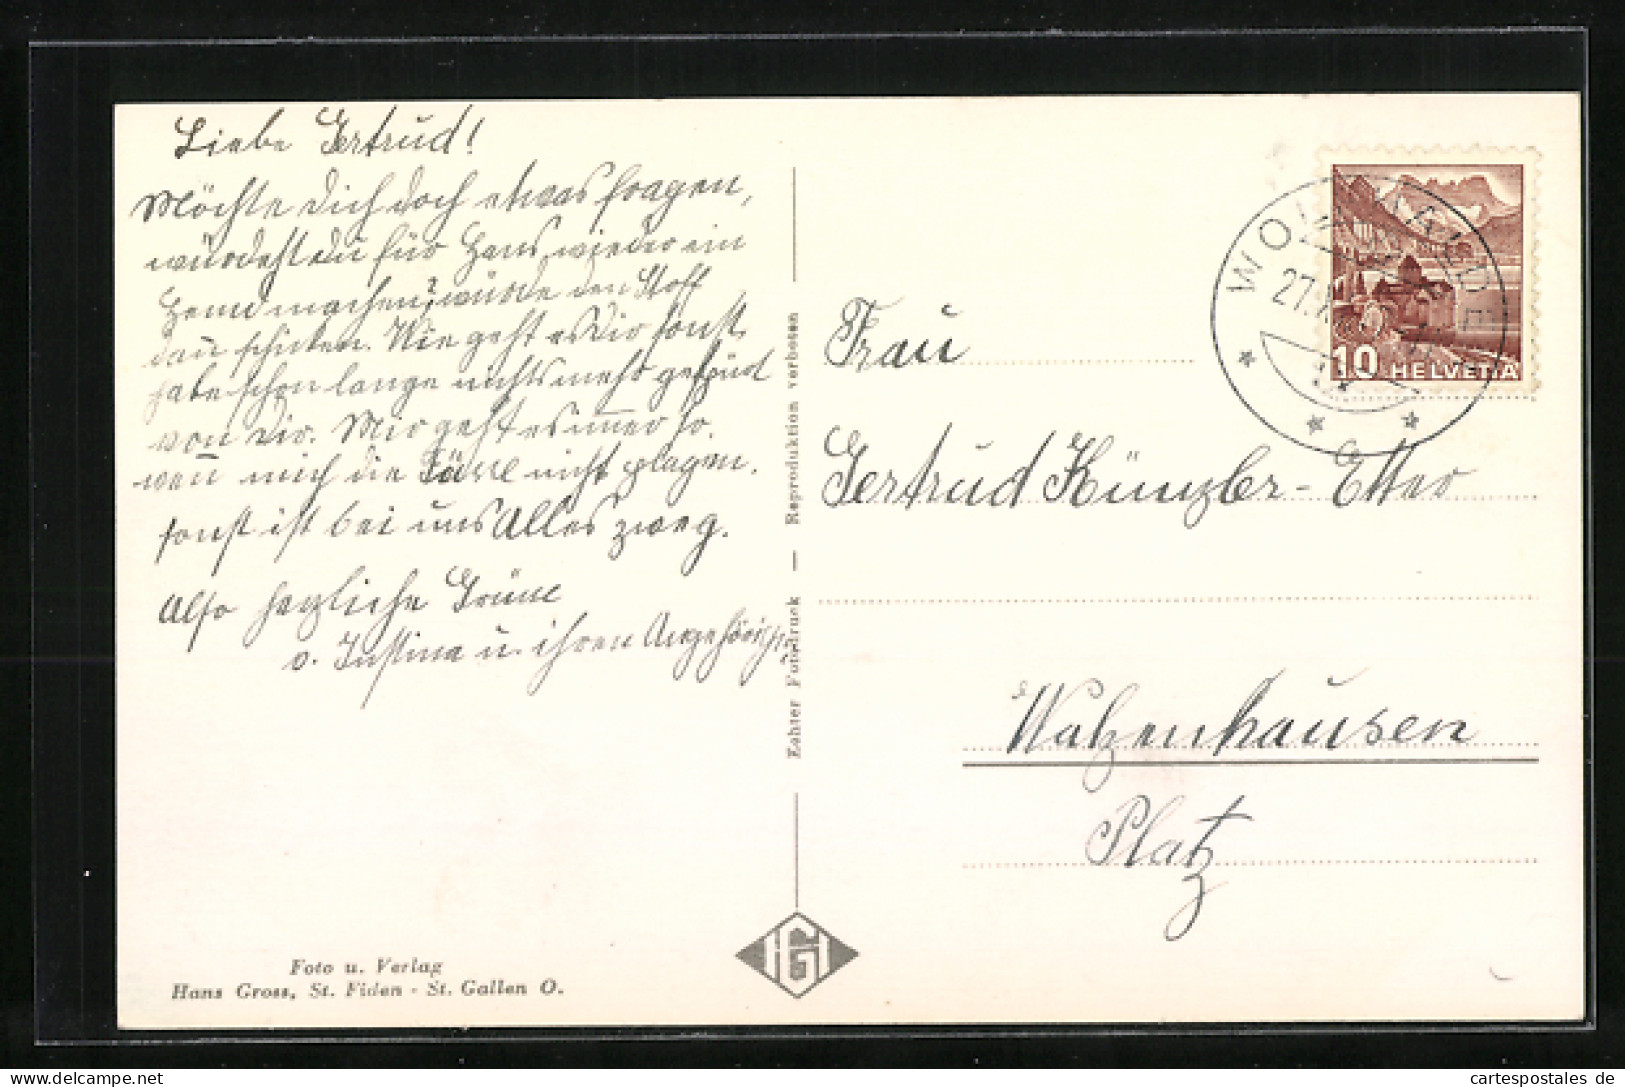 Liebe Gertrud!
Möchte dich doch etwas fragen,
würdest du für Hans wieder ein
Hemd machen? würde den Stoff
dan schicken. Wie geht es Dir sonst.
habe schon lange nichts mehr gehört
von Dir. Mir geht es immer so.
wen mich die nicht plagen.
sonst ist bei uns Alles zweg.
Also herzliche Grüsse
v. Justina u. ihren Angehörigen
Foto u. Verlag
Hans Gross, St. Fiden - St. Gallen O.
Echter Fotodruck — Reproduktion verboten
HG
WOLFHALDE
27.
10 HELVETIA
Frau
Gertrud Künzler-Etter
Walzenhausen
Platz
cartespostales.eu
cartespostales de